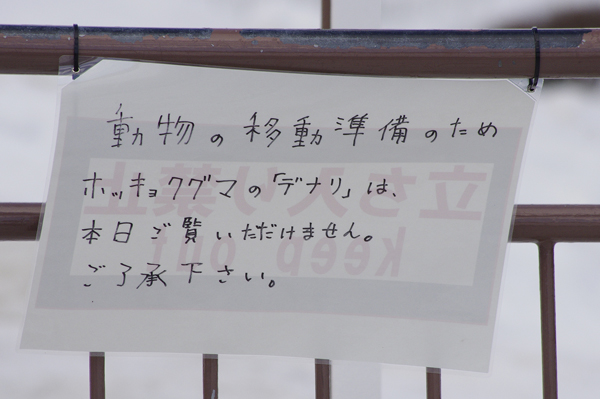 動物の移動準備のため
ホッキョクグマの「デナリ」は、
本日ご覧いただけません。
ご了承下さい。
立ち入り禁止
keep out